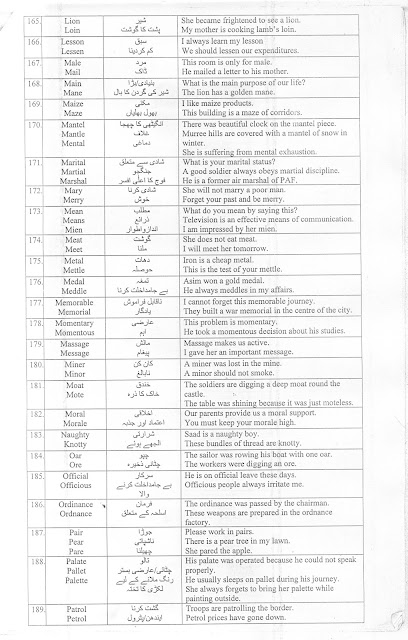 165. Lion شیر She became frightened to see a lion.
Loin پشت کا گوشت My mother is cooking lamb's loin.
166. Lesson سبق I always learn my lesson
Lessen کم کردینا We should lessen our expenditures.
167. Male مرد This room is only for male.
Mail ڈاک He mailed a letter to his mother.
168. Main بنیادی/بڑا What is the main purpose of our life?
Mane شیر کی گردن کا بال The lion has a golden mane.
169. Maize مکئی I like maize products.
Maze بھول بھلیاں This building is a maze of corridors.
170. Mantel انگیٹھی کا چھجا There was beautiful clock on the mantel piece.
Mantle غلاف Murree hills are covered with a mantel of snow in
Mental دماغی winter.
She is suffering from mental exhaustion.
171. Marital شادی سے متعلق What is your marital status?
Martial جنگجو A good soldier always obeys martial discipline.
Marshal فوج کا اعلٰی افسر He is a former air marshal of PAF.
172. Mary شادی کرنا She will not marry a poor man.
Merry خوش Forget your past and be merry.
173. Mean مطلب What do you mean by saying this?
Means ذرائع Television is an effective means of communication.
Mien اندازواطوار I am impressed by her mien.
174. Meat گوشت She does not eat meat.
Meet ملنا I will meet her tomorrow.
175. Metal دھات Iron is a cheap metal.
Mettle حوصلہ This is the test of your mettle.
176. Medal تمغہ Asim won a gold medal.
Meddle بے جامداخلت کرنا He always meddles in my affairs.
177. Memorable ناقابل فراموش I cannot forget this memorable journey.
Memorial یادگار They built a war memorial in the centre of the city.
178. Momentary عارضی This problem is momentary.
Momentous اہم He took a momentous decision about his studies.
179. Massage مالش Massage makes us active.
Message پیغام I gave her an important message.
180. Miner کان کن A miner was lost in the mine.
Minor نابالغ A minor should not smoke.
181. Moat خندق The soldiers are digging a deep moat round the
Mote خاک کا ذرہ castle.
The table was shining because it was just moteless.
182. Moral اخلاقی Our parents provide us a moral support.
Morale اعتماد اور جذبہ You must keep your morale high.
183. Naughty شرارتی Saad is a naughty boy.
Knotty الجھے ہوئے These bundles of thread are knotty.
184. Oar چپو The sailor was rowing his boat with one oar.
Ore چٹانی ذخیرہ The workers were digging an ore.
185. Official سرکار He is on official leave these days.
Officious بے جامداخلت کرنے Officious people always irritate me.
والا
186. Ordinance فرمان The ordinance was passed by the chairman.
Ordnance اسلحہ کے متعلق These weapons are prepared in the ordnance
factory.
187. Pair جوڑا Please work in pairs.
Pear ناشپاتی There is a pear tree in my lawn.
Pare چھیلنا She pared the apple.
188. Palate تالو His palate was operated because he could not speak
Pallet چٹائی/عارضی بستر properly.
Palette رنگ ملانے کے لیے He usually sleeps on pallet during his journey.
لکڑی کا تختہ She always forgets to bring her palette while
painting outside.
189. Patrol گشت کرنا Troops are patrolling the border.
Petrol ایندھن/پٹرول Petrol prices have gone down.